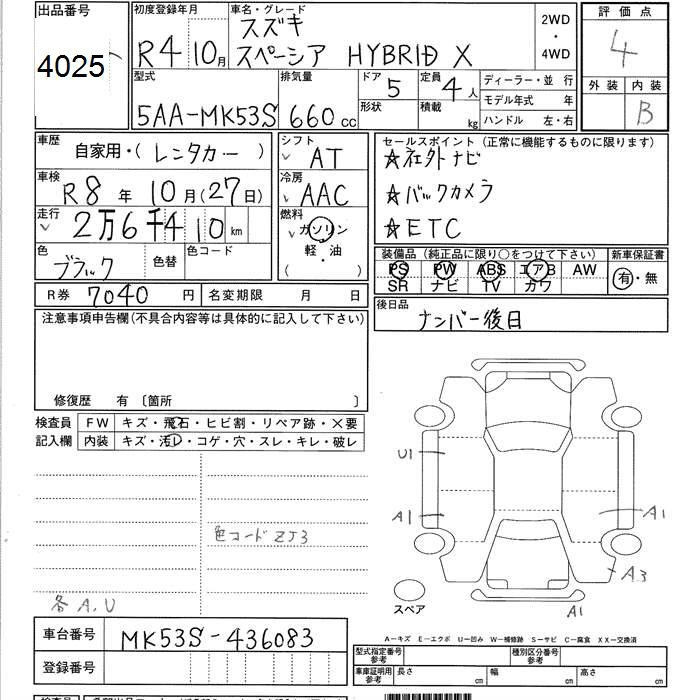 出品番号
4025
初度登録年月
R4 10月
車名・グレード
スズキ
スペーシア HYBRID X
2WD
・
4WD
評価点
4
外装 内装
B
型式
5AA-MK53S
排気量
660 cc
ドア
5
形状
定員
4人
積載
kg
ディーラー・並行
モデル年式 年
ハンドル 左・右
車歴
自家用・(レンタカー)
車検
R8年 10月(27日)
走行
2万6千410 km
色
ブラック
色替
色コード
シフト
AT
冷房
AAC
燃料
ガソリン
軽・油
( )
セールスポイント(正常に機能するものに限ります)
☆社外ナビ
☆バックカメラ
☆ETC
装備品(純正品に限り○をつけて下さい)
PS PW ABS エアB AW
SR ナビ TV カワ
新車保証書
有・無
R券 7040 円
名変期限 月 日
後日品
ナンバー後日
注意事項申告欄(不具合内容等は具体的に記入して下さい)
修復歴 有 〔箇所 〕
検査員
記入欄
FW キズ・飛石・ヒビ割・リペア跡・×要
内装 キズ・汚レ・コゲ・穴・スレ・キレ・破レ
色コードZJ3
各A.U
U1
A1
A1
A3
A1
スペア
A－キズ E－エクボ U－凹み W－補修跡 S－サビ C－腐食 XX－交換済
車台番号
MK53S-436083
登録番号
型式指定番号
参考
種別区分番号
参考
車庫証明用
参考
長さ cm
幅 cm
高さ cm